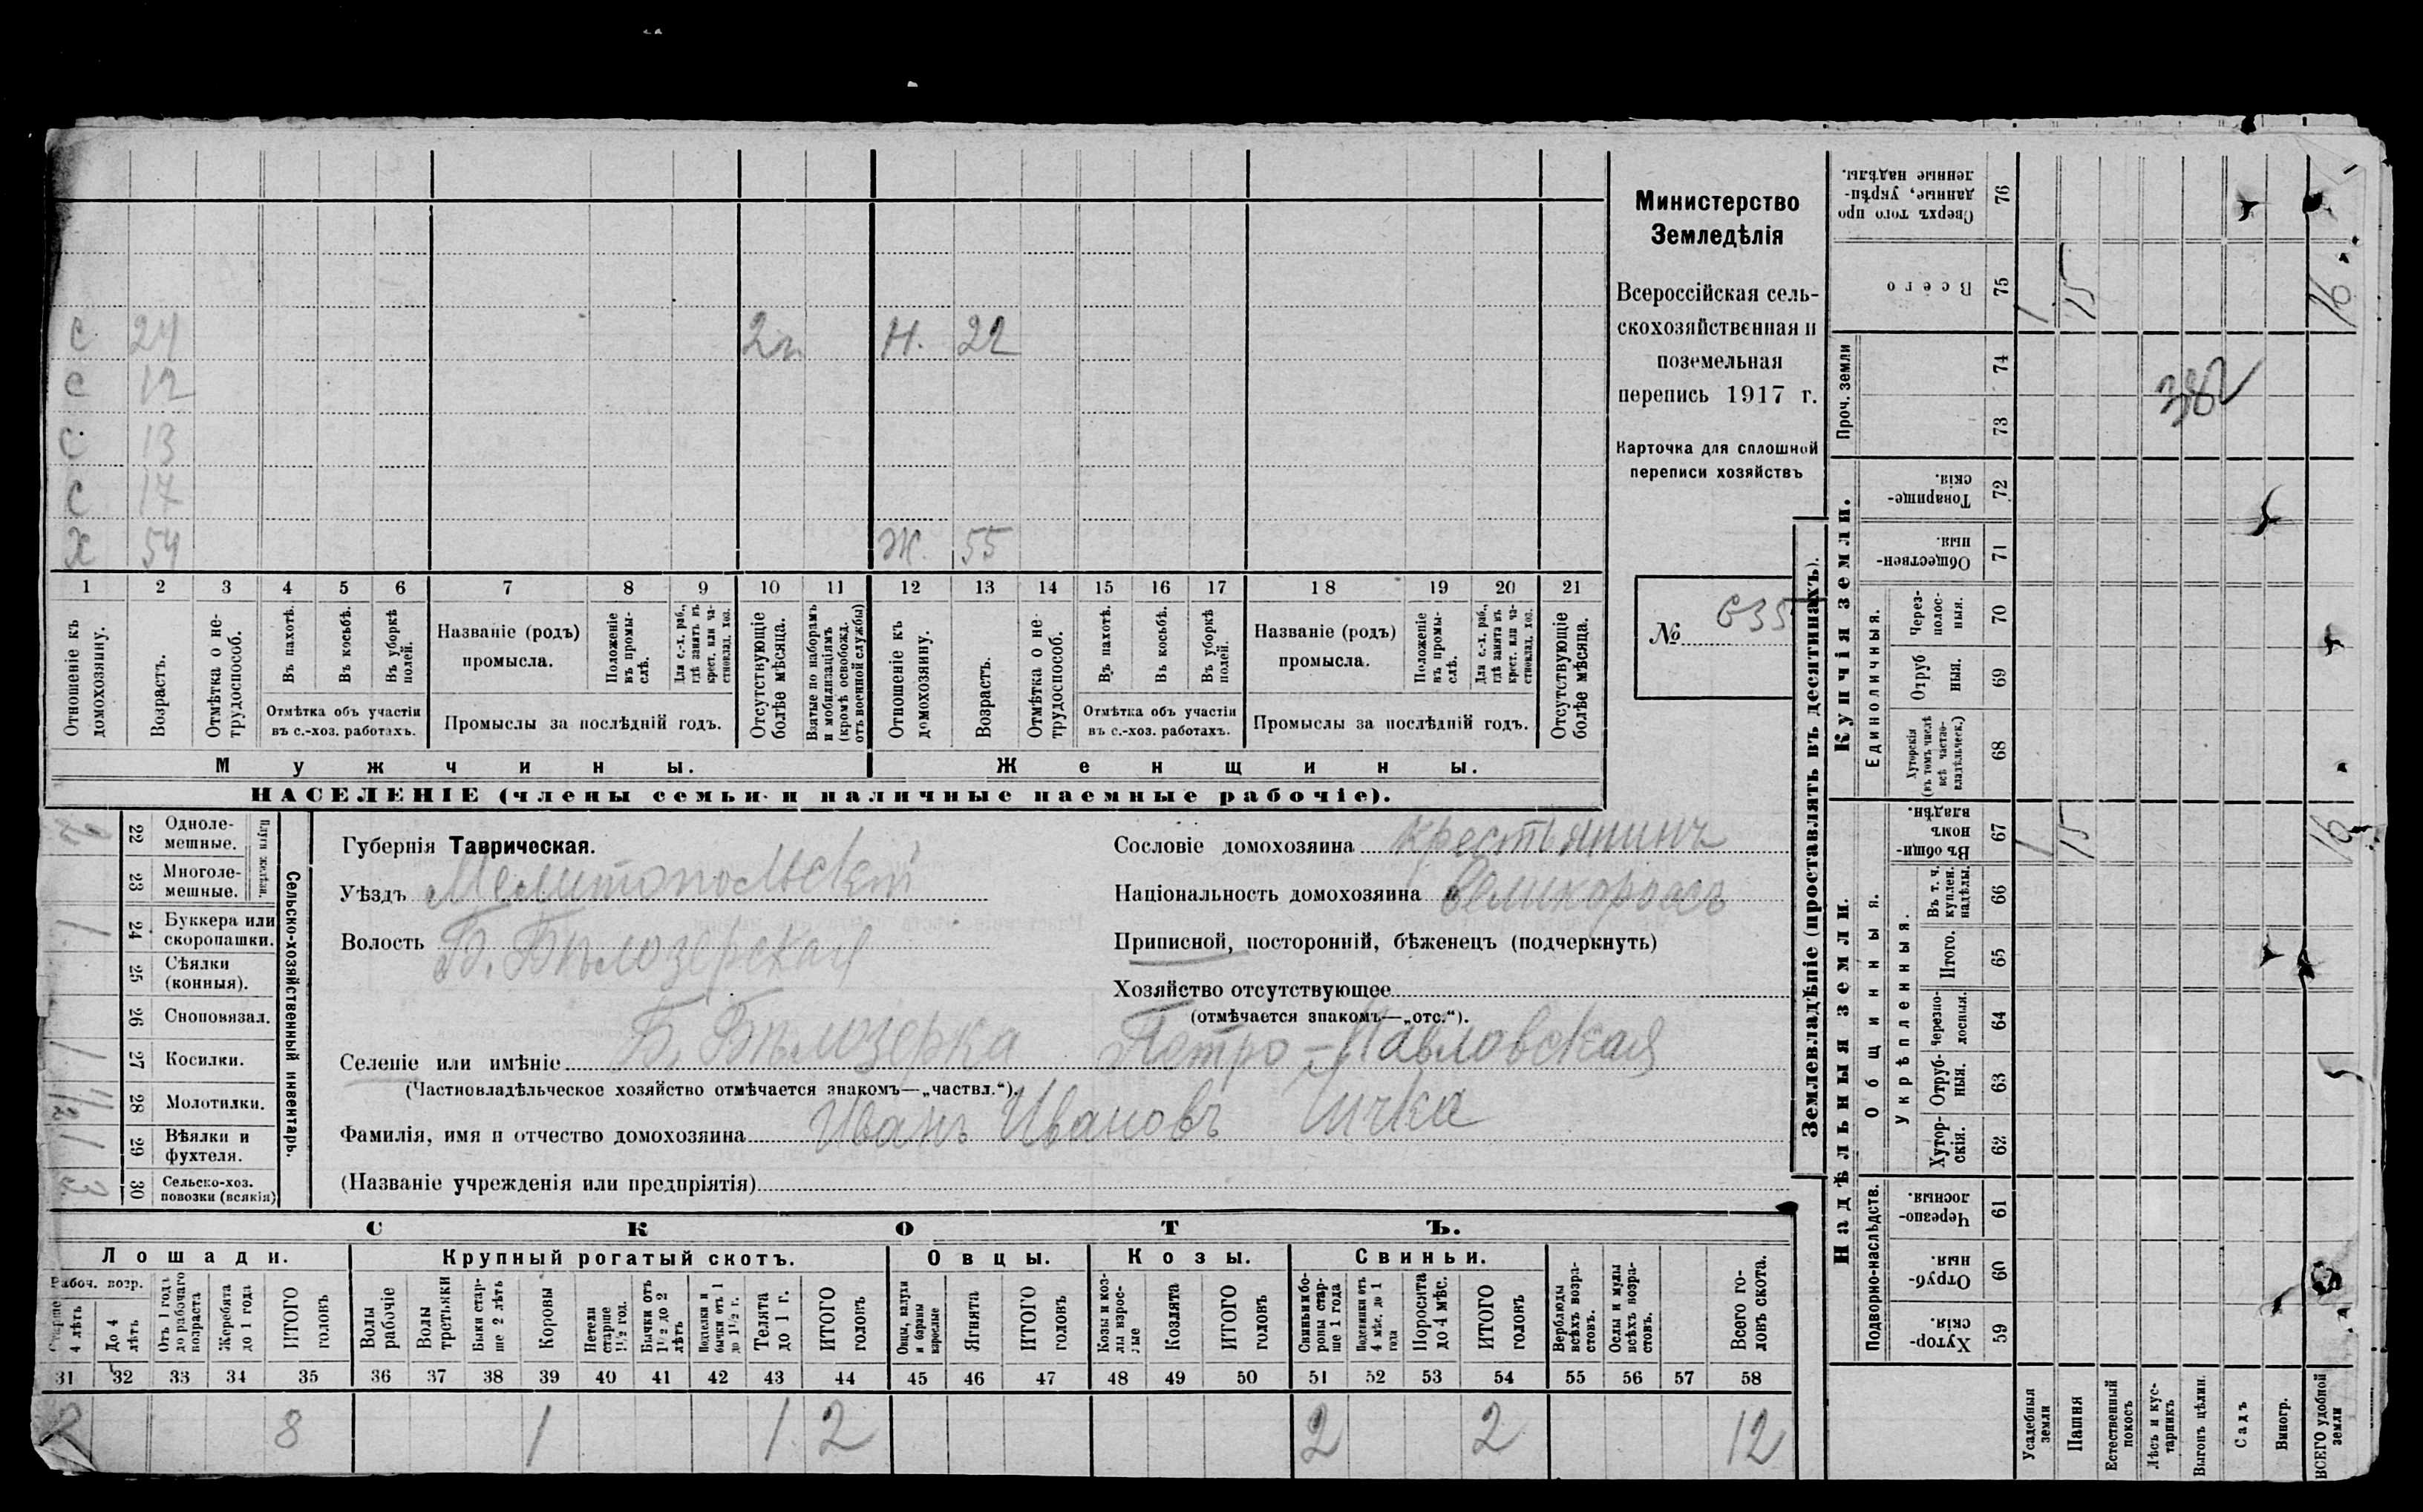 С 24 2 г. Н. 22
С 12
С 13
С 17
Х 54 Ж. 55
1 2 3 4 5 6 7 8 9 10 11 12 13 14 15 16 17 18 19 20 21
Отношеніе къ домохозяину.
Возрастъ.
Отмѣтка о нетрудоспособ.
Въ пахотѣ.
Въ косьбѣ.
Въ уборкѣ полей.
Отмѣтка объ участіи
въ с.-хоз. работахъ.
Названіе (родъ)
промысла.
Положеніе въ промыслѣ.
Для с.-х. раб., гдѣ занятъ въ крест. или частновлад. хоз.
Промыслы за послѣдній годъ.
Отсутствующіе болѣе мѣсяца.
Взятые по наборамъ и мобилизаціямъ (кромѣ освобожд. отъ военной службы)
Отношеніе къ домохозяину.
Возрастъ.
Отмѣтка о нетрудоспособ.
Въ пахотѣ.
Въ косьбѣ.
Въ уборкѣ полей.
Отмѣтка объ участіи
въ с.-хоз. работахъ.
Названіе (родъ)
промысла.
Положеніе въ промыслѣ.
Для с.-х. раб., гдѣ занята въ крест. или частновлад. хоз.
Промыслы за послѣдній годъ.
Отсутствующіе болѣе мѣсяца.
Мужчины. Женщины.
НАСЕЛЕНІЕ (члены семьи и наличные наемные рабочіе).
Министерство
Земледѣлія
Всероссійская сель-
скохозяйственная и
поземельная
перепись 1917 г.
Карточка для сплошной
переписи хозяйствъ
№ 635
Сельско-хозяйственный инвентарь.
Плуги желѣзн.
22 Одноле-
мешные.
23 Многоле-
мешные.
1 24 Буккера или
скоропашки.
25 Сѣялки
(конныя).
26 Сноповязал.
1 27 Косилки.
1/2 28 Молотилки.
1 29 Вѣялки и
фухтеля.
3 30 Сельско-хоз.
повозки (всякія)
Губернія Таврическая.
Уѣздъ Мелитопольскій
Волость Б. Бѣлозерская
Селеніе или имѣніе Б. Бѣлозерка Петро-Павловская
(Частновладѣльческое хозяйство отмѣчается знакомъ—„частвл.“).
Фамилія, имя и отчество домохозяина Иванъ Ивановъ
(Названіе учрежденія или предпріятія)
Сословіе домохозяина крестьянинъ
Національность домохозяина великороссъ
Приписной, посторонній, бѣженецъ (подчеркнуть)
Хозяйство отсутствующее
(отмѣчается знакомъ—„отс.“).
СКОТЪ.
Лошади. Крупный рогатый скотъ. Овцы. Козы. Свиньи.
Рабоч. возр.
Старше 4 лѣтъ
До 4 лѣтъ
Отъ 1 года до рабочаго возраста
Жеребята до 1 года
ИТОГО головъ
Волы рабочіе
Волы третьяки
Быки старше 2 лѣтъ
Коровы
Нетели старше 1½ год.
Бычки отъ 1½ до 2 лѣтъ
Подтелки и бычки отъ 1 до 1½ г.
Телята до 1 г.
ИТОГО головъ
Овцы, валухи и бараны взрослые
Ягнята
ИТОГО головъ
Козы и козлы взрослые
Козлята
ИТОГО головъ
Свиньи и боровы старше 1 года
Подсвинки отъ 4 мѣс. до 1 года
Поросята до 4 мѣс.
ИТОГО головъ
Верблюды всѣхъ возрастовъ.
Ослы и мулы всѣхъ возрастовъ.
Всего головъ скота.
31 32 33 34 35 36 37 38 39 40 41 42 43 44 45 46 47 48 49 50 51 52 53 54 55 56 57 58
8 1 1 2 2 2 12
Землевладѣніе (проставлять въ десятинахъ).
Надѣльныя земли. Купчія земли. Проч. земли
Подворно-наслѣдств.
Общинныя.
Укрѣпленныя.
Единоличныя.
Сверхъ того проданные, укрѣпленные надѣлы. 76
Всего 75 1 15 16
74
73
382
Товарищескія. 72
Общественныя. 71
Черезполосныя. 70
Отрубныя. 69
Хуторскія (въ томъ числѣ всѣ частновладѣльческ.) 68
Въ общинномъ владѣн. 67 1 15 16
Въ т. ч. куплен. надѣлы. 66
Итого. 65
Черезполосныя. 64
Отрубныя. 63
Хуторскія. 62
Черезполосныя. 61
Отрубныя. 60
Хуторскія. 59
Усадебныя земли
Пашня
Естественный покосъ
Лѣсъ и кустарникъ
Выгонъ цѣлин.
Садъ
Виногр.
ВСЕГО удобной земли